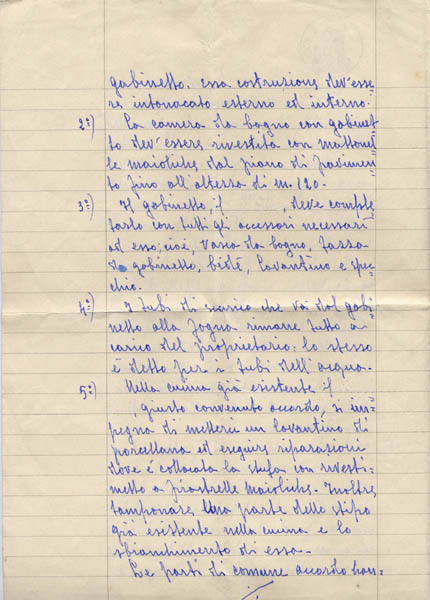 gabinetto. essa costruzione dev'esse
re intonacato esterno ed interno.
2°) La camera da bagno con gabinet
to dev'essere rivestita con mattonel
le maioliche dal piano di pavimen
to fino all'altezza di m. 1.20.
3°) Il gabinetto; il , deve comple
tarlo con tutti gli accessori necessari
ad esso; cioè, vasca da bagno, tazza
da gabinetto, bidè, lavantino e spec
chio.
4°) I tubi di scarico che va dal gabi
netto alla fogna rimane tutto a
carico del proprietario: lo stesso
è detto per i tubi dell'acqua.
5°) Nella cucina già esistente il
, giusto convenuto accordo, si im=
pegna di metterci un lavantino di
porcellana ed eseguire riparazioni
dove è collocata la stufa con rivesti=
metto a piastrelle maioliche. Inoltre
tamponare una parte dello stipo
già esistente nella cucina e lo
sbianchimento di essa.
Le parti di comune accordo han=